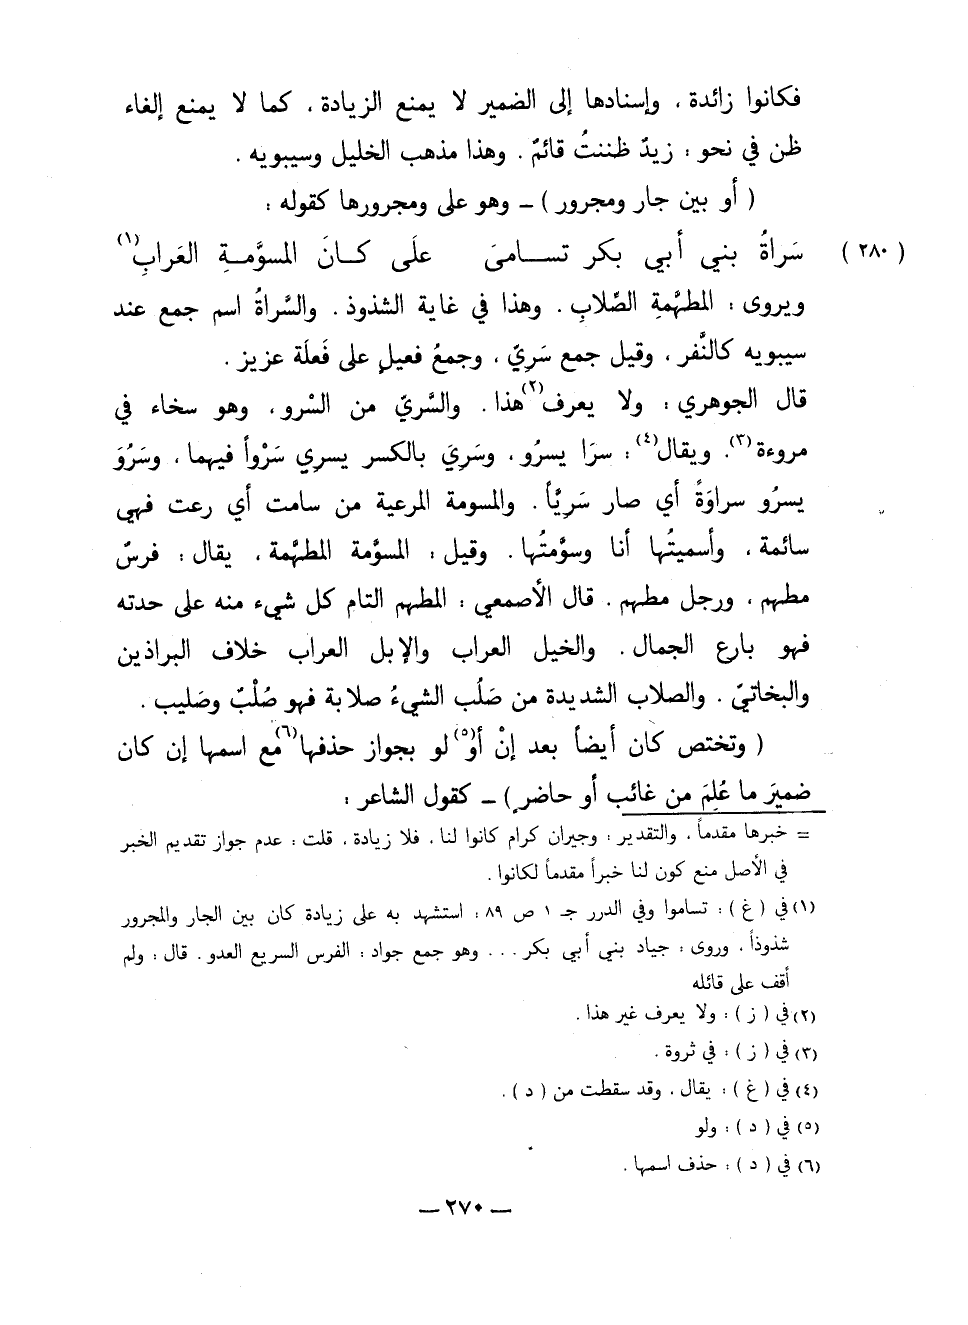 فكانوا زائدة ، وإسنادها إلى الضمير لا يمنع الزيادة ، كما لا يمنع إلغاء
ظن في نحو : زيدٌ ظننتُ قائمٌ . وهذا مذهب الخليل وسيبويه .
( أو بين جار ومجرور ) ــ وهو على ومجرورها كقوله :
( ٢٨٠ ) سَراةُ بني أبي بكر تســامىَ علَى كــانَ المسوَّمــةِ العَرابِ(١)
ويروى : المطهَّمةِ الصِّلابِ . وهذا في غاية الشذوذ . والسَّراةُ اسم جمع عند
سيبويه كالنَّفر ، وقيل جمع سَرِيّ ، وجمعُ فعيلٍ على فَعلَة عزيز .
قال الجوهري : ولا يعرف(٢) هذا . والسَّريّ من السْرو ، وهو سخاء في
مروءة(٣). ويقال(٤) : سرَا يسرُو ، وسَرِيَ بالكسر يسري سَرْواً فيهما ، وسَرُوَ
يسرُو سراوَةً أي صار سَرِيًّا . والمسومة المرعية من سامت أي رعت فهي
سائمة ، وأسميتُها أنا وسوَّمتُها . وقيل : المسوَّمة المطهَّمة ، يقال : فرسٌ
مطهم ، ورجل مطهم . قال الأصمعي : المطهم التام كل شيء منه على حدته
فهو بارع الجمال . والخيل العراب والإبل العراب خلاف البراذين
والبخاتيّ . والصلاب الشديدة من صَلُب الشيءُ صلابة فهو صُلْبٌ وصَليب .
( وتختص كان أيضاً بعد إنْ أو(٥) لو بجواز حذفها(٦) مع اسمها إن كان
ضميرَ ما عُلِمَ من غائب أو حاضرٍ ) ــ كقول الشاعر :
= خبرها مقدماً ، والتقدير : وجيران كرام كانوا لنا ، فلا زيادة ، قلت : عدم جواز تقديم الخبر
في الأصل منع كون لنا خبراً مقدماً لكانوا .
(١) في ( غ ) : تساموا وفي الدرر جـ ١ ص ٨٩ : استشهد به على زيادة كان بين الجار والمجرور
شذوذاً ، وروى : جياد بني أبي بكر . . . وهو جمع جواد : الفرس السريع العدو . قال : ولم
أقف على قائله
(٢) في ( ز ) : ولا يعرف غير هذا .
(٣) في ( ز ) : في ثروة .
(٤) في ( غ ) : يقال ، وقد سقطت من ( د ) .
(٥) في ( د ) : ولو
(٦) في ( د ) : حذف اسمها .
ــ ٢٧٠ ــ